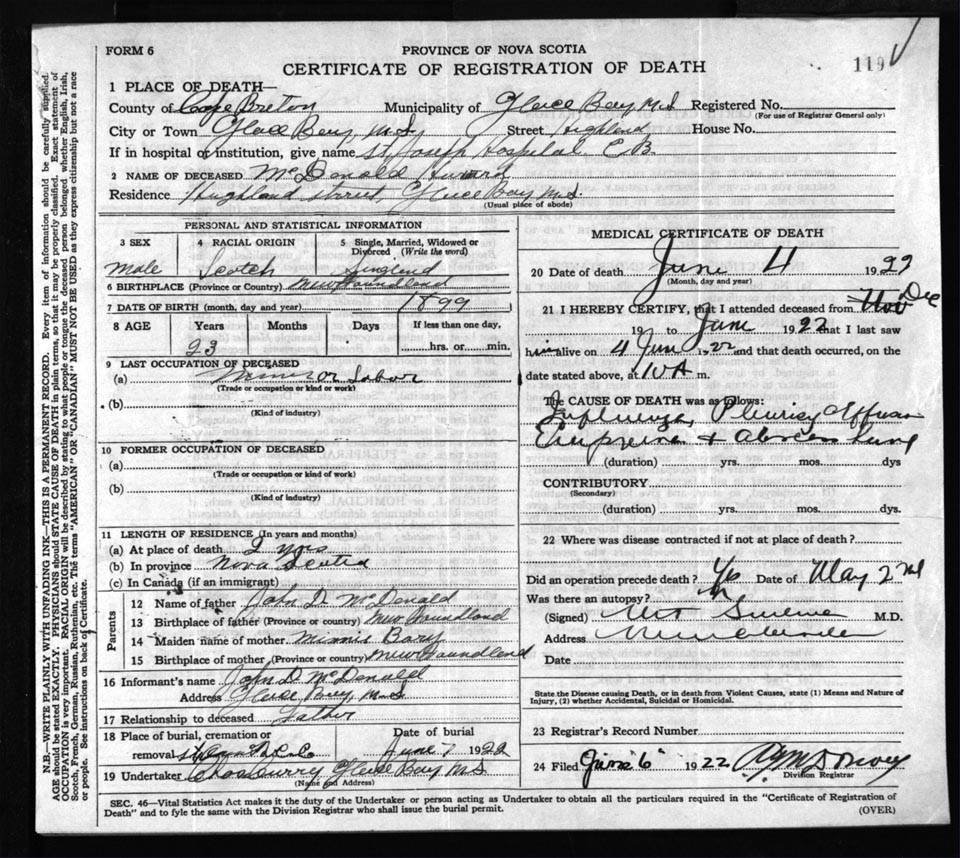 FORM 6
PROVINCE OF NOVA SCOTIA
CERTIFICATE OF REGISTRATION OF DEATH
119
1 PLACE OF DEATH—
County of Cape Breton Municipality of Glace Bay N.S Registered No.
(For use of Registrar General only)
City or Town Glace Bay, N.S, Street Highland House No.
If in hospital or institution, give name St Joseph Hospital C B.
2 NAME OF DECEASED McDonald
Residence Highland Street, Glace Bay N.S.
(Usual place of abode)
PERSONAL AND STATISTICAL INFORMATION
3 SEX 4 RACIAL ORIGIN 5 Single, Married, Widowed or Divorced (Write the word)
Male Scotch
6 BIRTHPLACE (Province or Country) New Foundland
7 DATE OF BIRTH (month, day and year) 1899
8 AGE Years Months Days If less than one day,
23 hrs. or min.
9 LAST OCCUPATION OF DECEASED
(a) Labor
(Trade or occupation or kind or work)
(b)
(Kind of industry)
10 FORMER OCCUPATION OF DECEASED
(a)
(Trade or occupation or kind or work)
(b)
(Kind of industry)
11 LENGTH OF RESIDENCE (In years and months)
(a) At place of death 2 yrs
(b) In province Nova Scotia
(c) In Canada (if an immigrant)
Parents
12 Name of father John D. McDonald
13 Birthplace of father (Province or country) New Foundland
14 Maiden name of mother Minnie Barry
15 Birthplace of mother (Province or country) New Foundland
16 Informant's name John D. McDonald
Address Glace Bay N.S
17 Relationship to deceased Father
18 Place of burial, cremation or Date of burial
removal June 7 1922
19 Undertaker Glace Bay N.S
(Name and Address)
MEDICAL CERTIFICATE OF DEATH
20 Date of death June 4 1922
(Month, day and year)
21 I HEREBY CERTIFY, that I attended deceased from Nov Dec
19 to June 1922 that I last saw
him alive on 4 June 1922 and that death occurred, on the
date stated above, at 10 A m.
The CAUSE OF DEATH was as follows:
Influenza, Pleurisy Effusion
Empyema + abscess lung
(duration) yrs. mos. dys
CONTRIBUTORY
(Secondary)
(duration) yrs. mos. dys.
22 Where was disease contracted if not at place of death?
Did an operation precede death? Yes Date of May 2nd
Was there an autopsy?
(Signed) M.D.
Address
Date
State the Disease causing Death, or in death from Violent Causes, state (1) Means and Nature of
Injury, (2) whether Accidental, Suicidal or Homicidal.
23 Registrar's Record Number
24 Filed June 6 1922
Division Registrar
SEC. 46—Vital Statistics Act makes it the duty of the Undertaker or person acting as Undertaker to obtain all the particulars required in the "Certificate of Registration of
Death" and to fyle the same with the Division Registrar who shall issue the burial permit. (OVER)
N.B.—WRITE PLAINLY WITH UNFADING INK—THIS IS A PERMANENT RECORD. Every item of information should be carefully supplied.
AGE should be stated EXACTLY. PHYSICIANS should STATE CAUSE OF DEATH in plain terms, so that it may be properly classified. Exact statement of
OCCUPATION is very important. RACIAL ORIGIN will be described by stating to what people or tongue the deceased person belonged whether English, Irish,
Scotch, French, German, Russian, Ruthenian, etc. The terms "AMERICAN" OR "CANADIAN" MUST NOT BE USED as they express citizenship but not a race
or people. See instructions on back of Certificate.